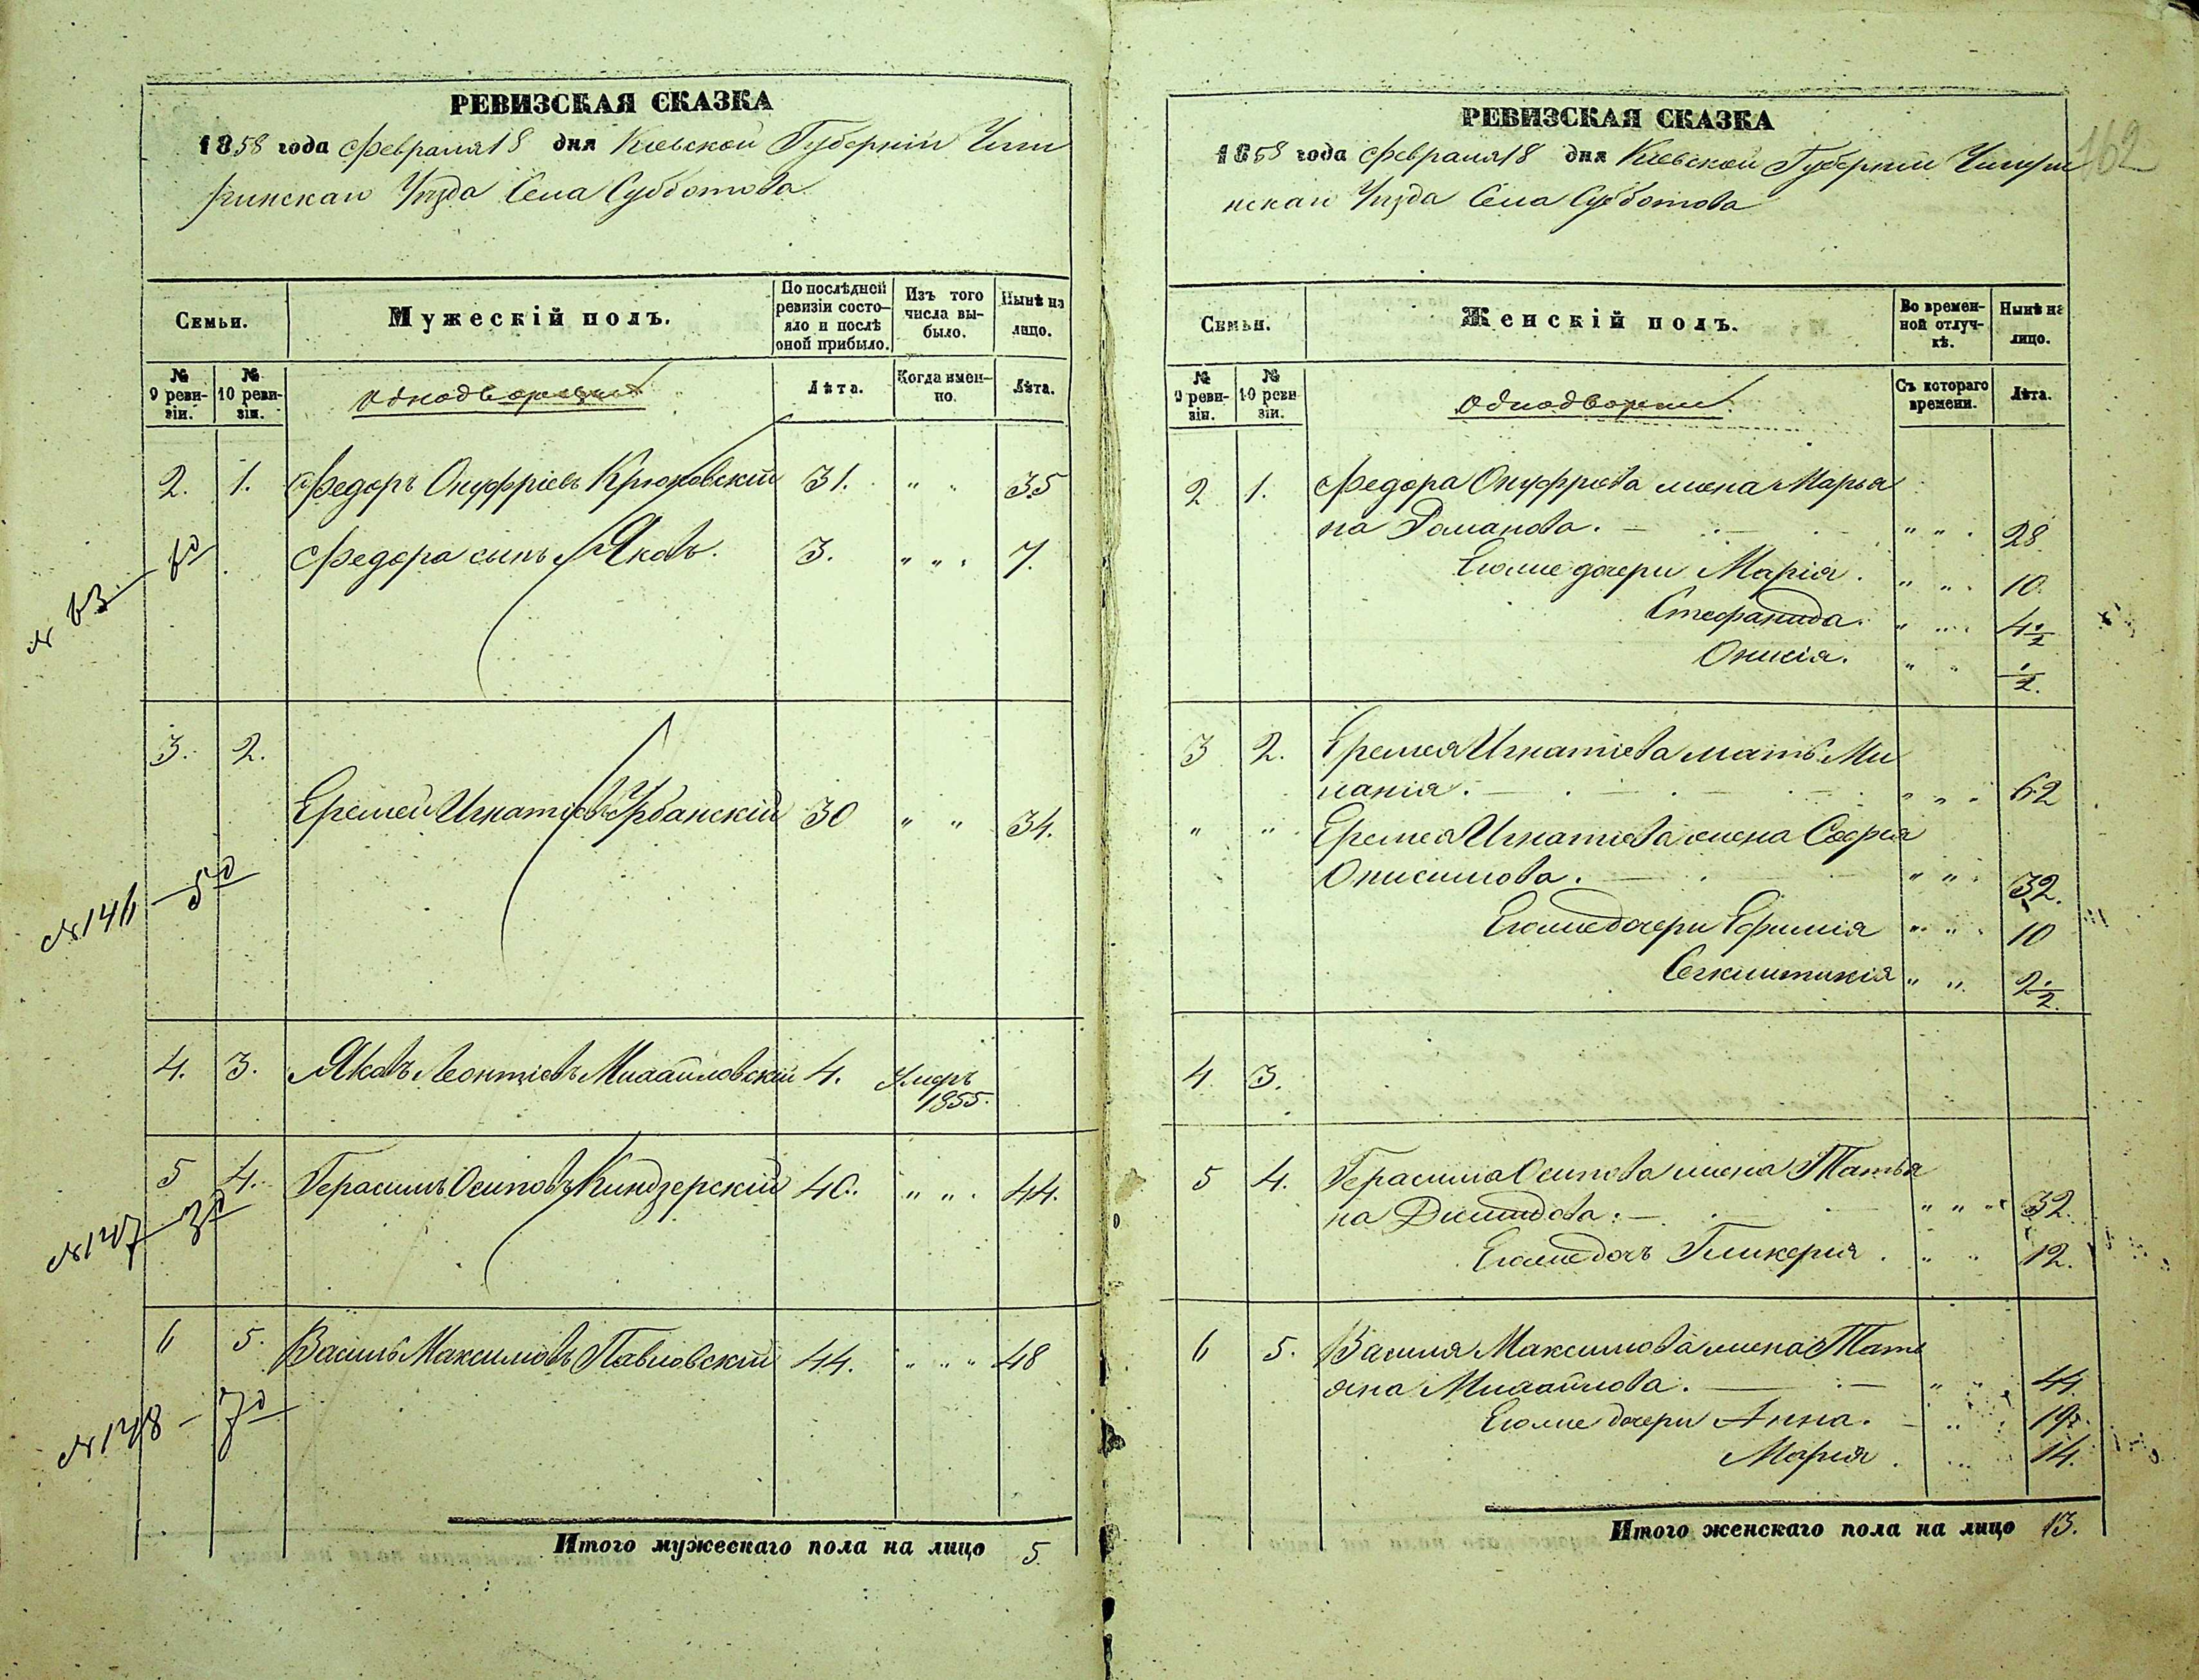 РЕВИЗСКАЯ СКАЗКА
1858 года Февраля 18 дня Кіевской Губерніи Чиги
ринскаго Уѣзда Села Субботова
Семьи.
Мужескій полъ.
По послѣдней ревизіи состояло и послѣ оной прибыло.
Изъ того числа выбыло.
Нынѣ на лицо.
№ 9 ревизіи.
№ 10 ревизіи.
Лѣта.
Когда именно.
Лѣта.
2. 1. Федоръ Онуфріевъ Крюковскій 31. " " 35
Федора сынъ Яковъ. 3. " " " 7.
№ 63
3. 2.
Еремей Игнатіевъ Урбанскій 30 " " 34.
№ 146 — 5
4. 3. Яковъ Леонтіевъ Михайловскій 4. Умеръ
1855.
5 4. Герасимъ Осиповъ Киндзерскій 40. " " " 44.
№ 147 — 3
6 5. Василь Максимовъ Павловскій 44. " " " 48
№ 148 — 7
Итого мужескаго пола на лицо 5.
162
РЕВИЗСКАЯ СКАЗКА
1858 года Февраля 18 дня Кіевской Губерніи Чигири
нскаго Уѣзда Села Субботова
Семьи.
Женскій полъ.
Во временной отлучкѣ.
Нынѣ на лицо.
№ 9 ревизіи.
№ 10 ревизіи.
Однодворцы.
Съ котораго времени.
Лѣта.
2 1. Федора Онуфріева жена Марья
на Романова. " " " 28.
Егоже дочери Марія. " " " 10.
Стефанида. " " " 4 1/2
Онисія. " " 1/2.
3 2. Еремея Игнатіева мать Ми
ланія. " " " 62
" " Еремея Игнатіева жена Софія
Онисимова. " " " 32.
Егоже дочери Ефимія " " " 10
" " 2 1/2.
4. 3.
5 4. Герасима Осипова жена Татья
на Демидова. " " " 32.
Егоже дочь Гликерія. " " 12.
6 5. Василя Максимова жена Тать
яна Михайлова. " " 44.
Егоже дочери Анна. 19.
Марія. 14.
Итого женскаго пола на лицо 13.